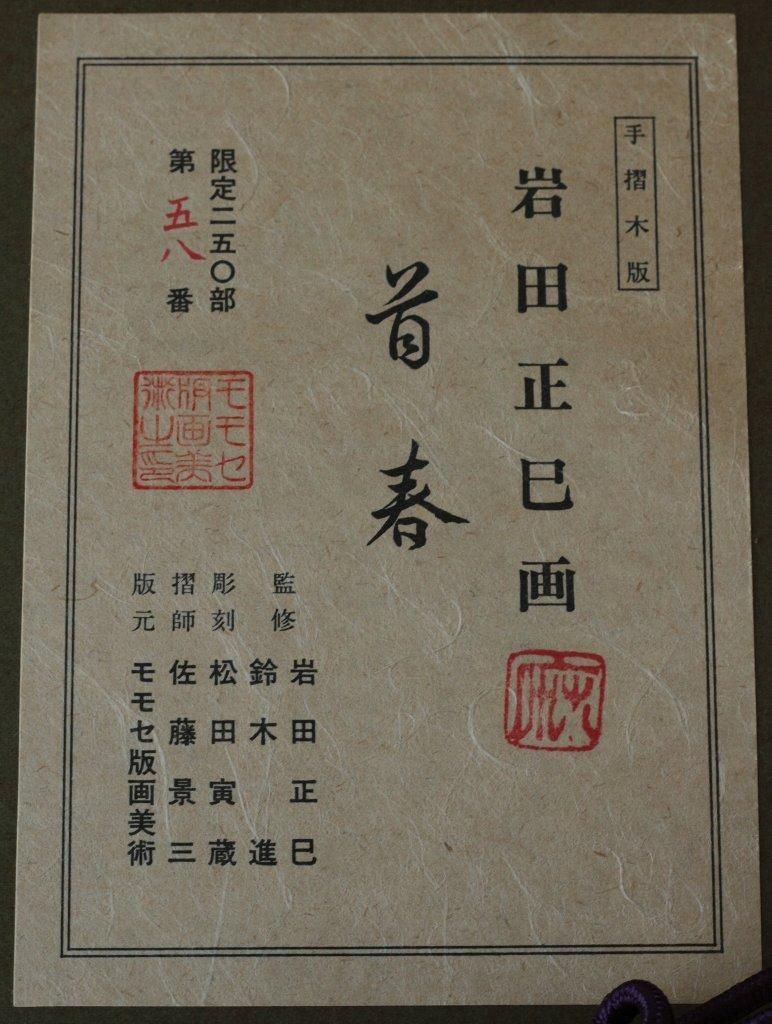 手摺木版
岩田正巳画
首春
限定二五〇部
第五八番
モモセ
版画美
術之印
監修 岩田正巳
鈴木進
彫刻 松田寅蔵
摺師 佐藤景三
版元 モモセ版画美術